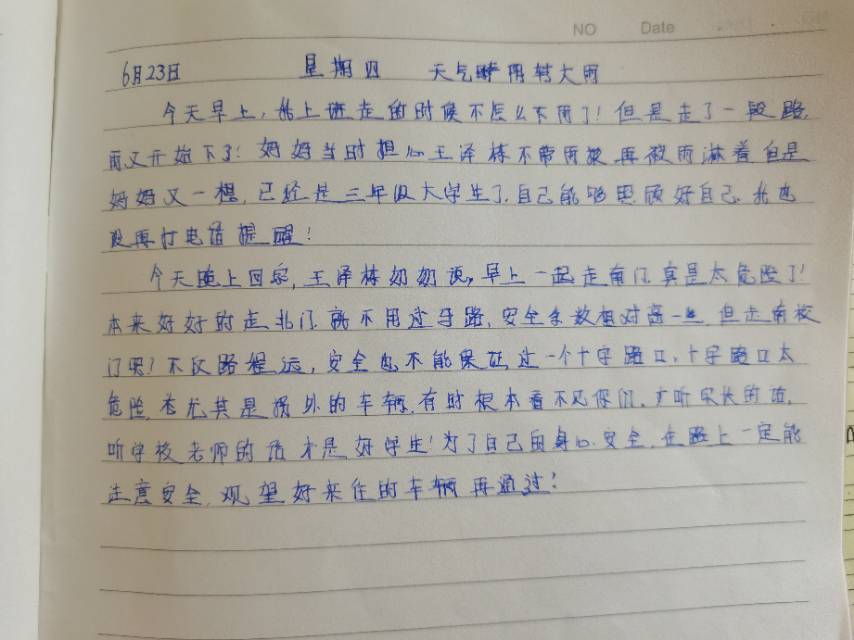 NO Date
6月23日 星期四 天气 阴转大雨
今天早上,我上班走的时候不怎么下雨了!但是走了一段路,
雨又开始下了!妈妈当时担心王泽栋不带雨披再被雨淋着但是
妈妈又一想,已经是三年级大学生了,自己能够照顾好自己.我也
没再打电话提醒!
今天晚上回家,王泽栋奶奶说,早上一起走南门,真是太危险了!
本来好好的走北门就不用过马路,安全系数相对高一些,但走南校
门呢?不仅路程远,安全也不能保证,过一个十字路口,十字路口太
危险,尤其是拐外的车辆,有时根本看不见你们,听家长的话,
听学校老师的话才是好学生!为了自己的身心安全,在路上一定能
注意安全,观望好来往的车辆再通过!